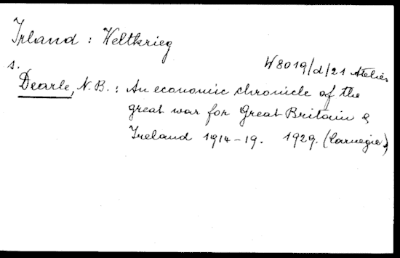 Irland : Weltkrieg
W8019/d/21 Atelier
s.
Dearle, N.B. : An economic chronicle of the
great war for Great Britain &
Ireland 1914-19. 1929. (Carnegie)